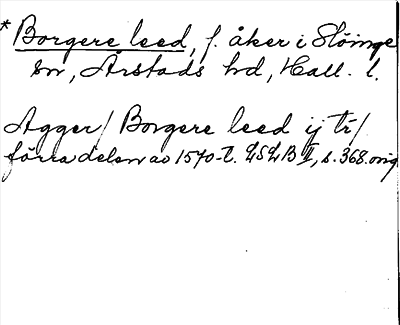 * Borgere leed, f. åker i Slöinge
sn, Årstads hd, Hall. l.
Agger / Borgere leed ij tr /
förra delen av 1570-t. GSGB II, s. 368. orig